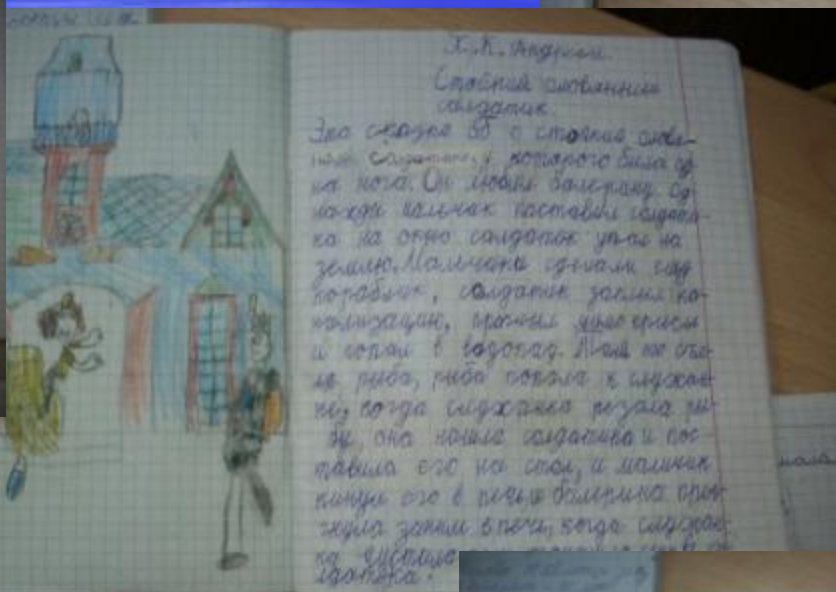 Х.К. Андрсен.
Стойкий оловянный
солдатик
Это сказка об о стойкий оловя-
ном солдатике, у которого была од
на нога. Он любил балерину. Од
нажды мальчик поставил солдати-
ка на окно солдатик упал на
землю. Мальчики сделали ему
кораблик, солдатик заплыл ка-
нализацию, проплыл крысы
и попал в водопад. его съе-
ла рыба, рыба попала к служан-
ке, когда служанка резала ры-
бу, она нашла солдатика и пос-
тавила его на стол, и мальчик
кинул его в печь и балерина пры-
гнула заним в печь, когда служан-
ка
лдатика.